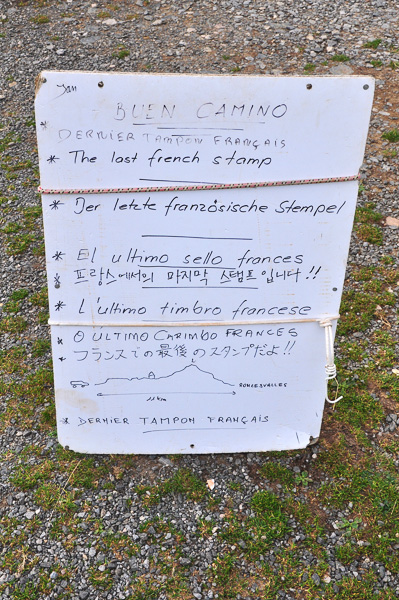 Jan
BUEN CAMINO
* DERNIER TAMPON FRANÇAIS
* The last french stamp
* Der letzte französische Stempel
* El ultimo sello frances
* 프랑스에서의 마지막 스탬프입니다!!
* L'ultimo timbro francese
* O ULTIMO CARIMBO FRANCES
* フランスでの最後のスタンプだよ!!
RONCEVALLES
km
* DERNIER TAMPON FRANÇAIS